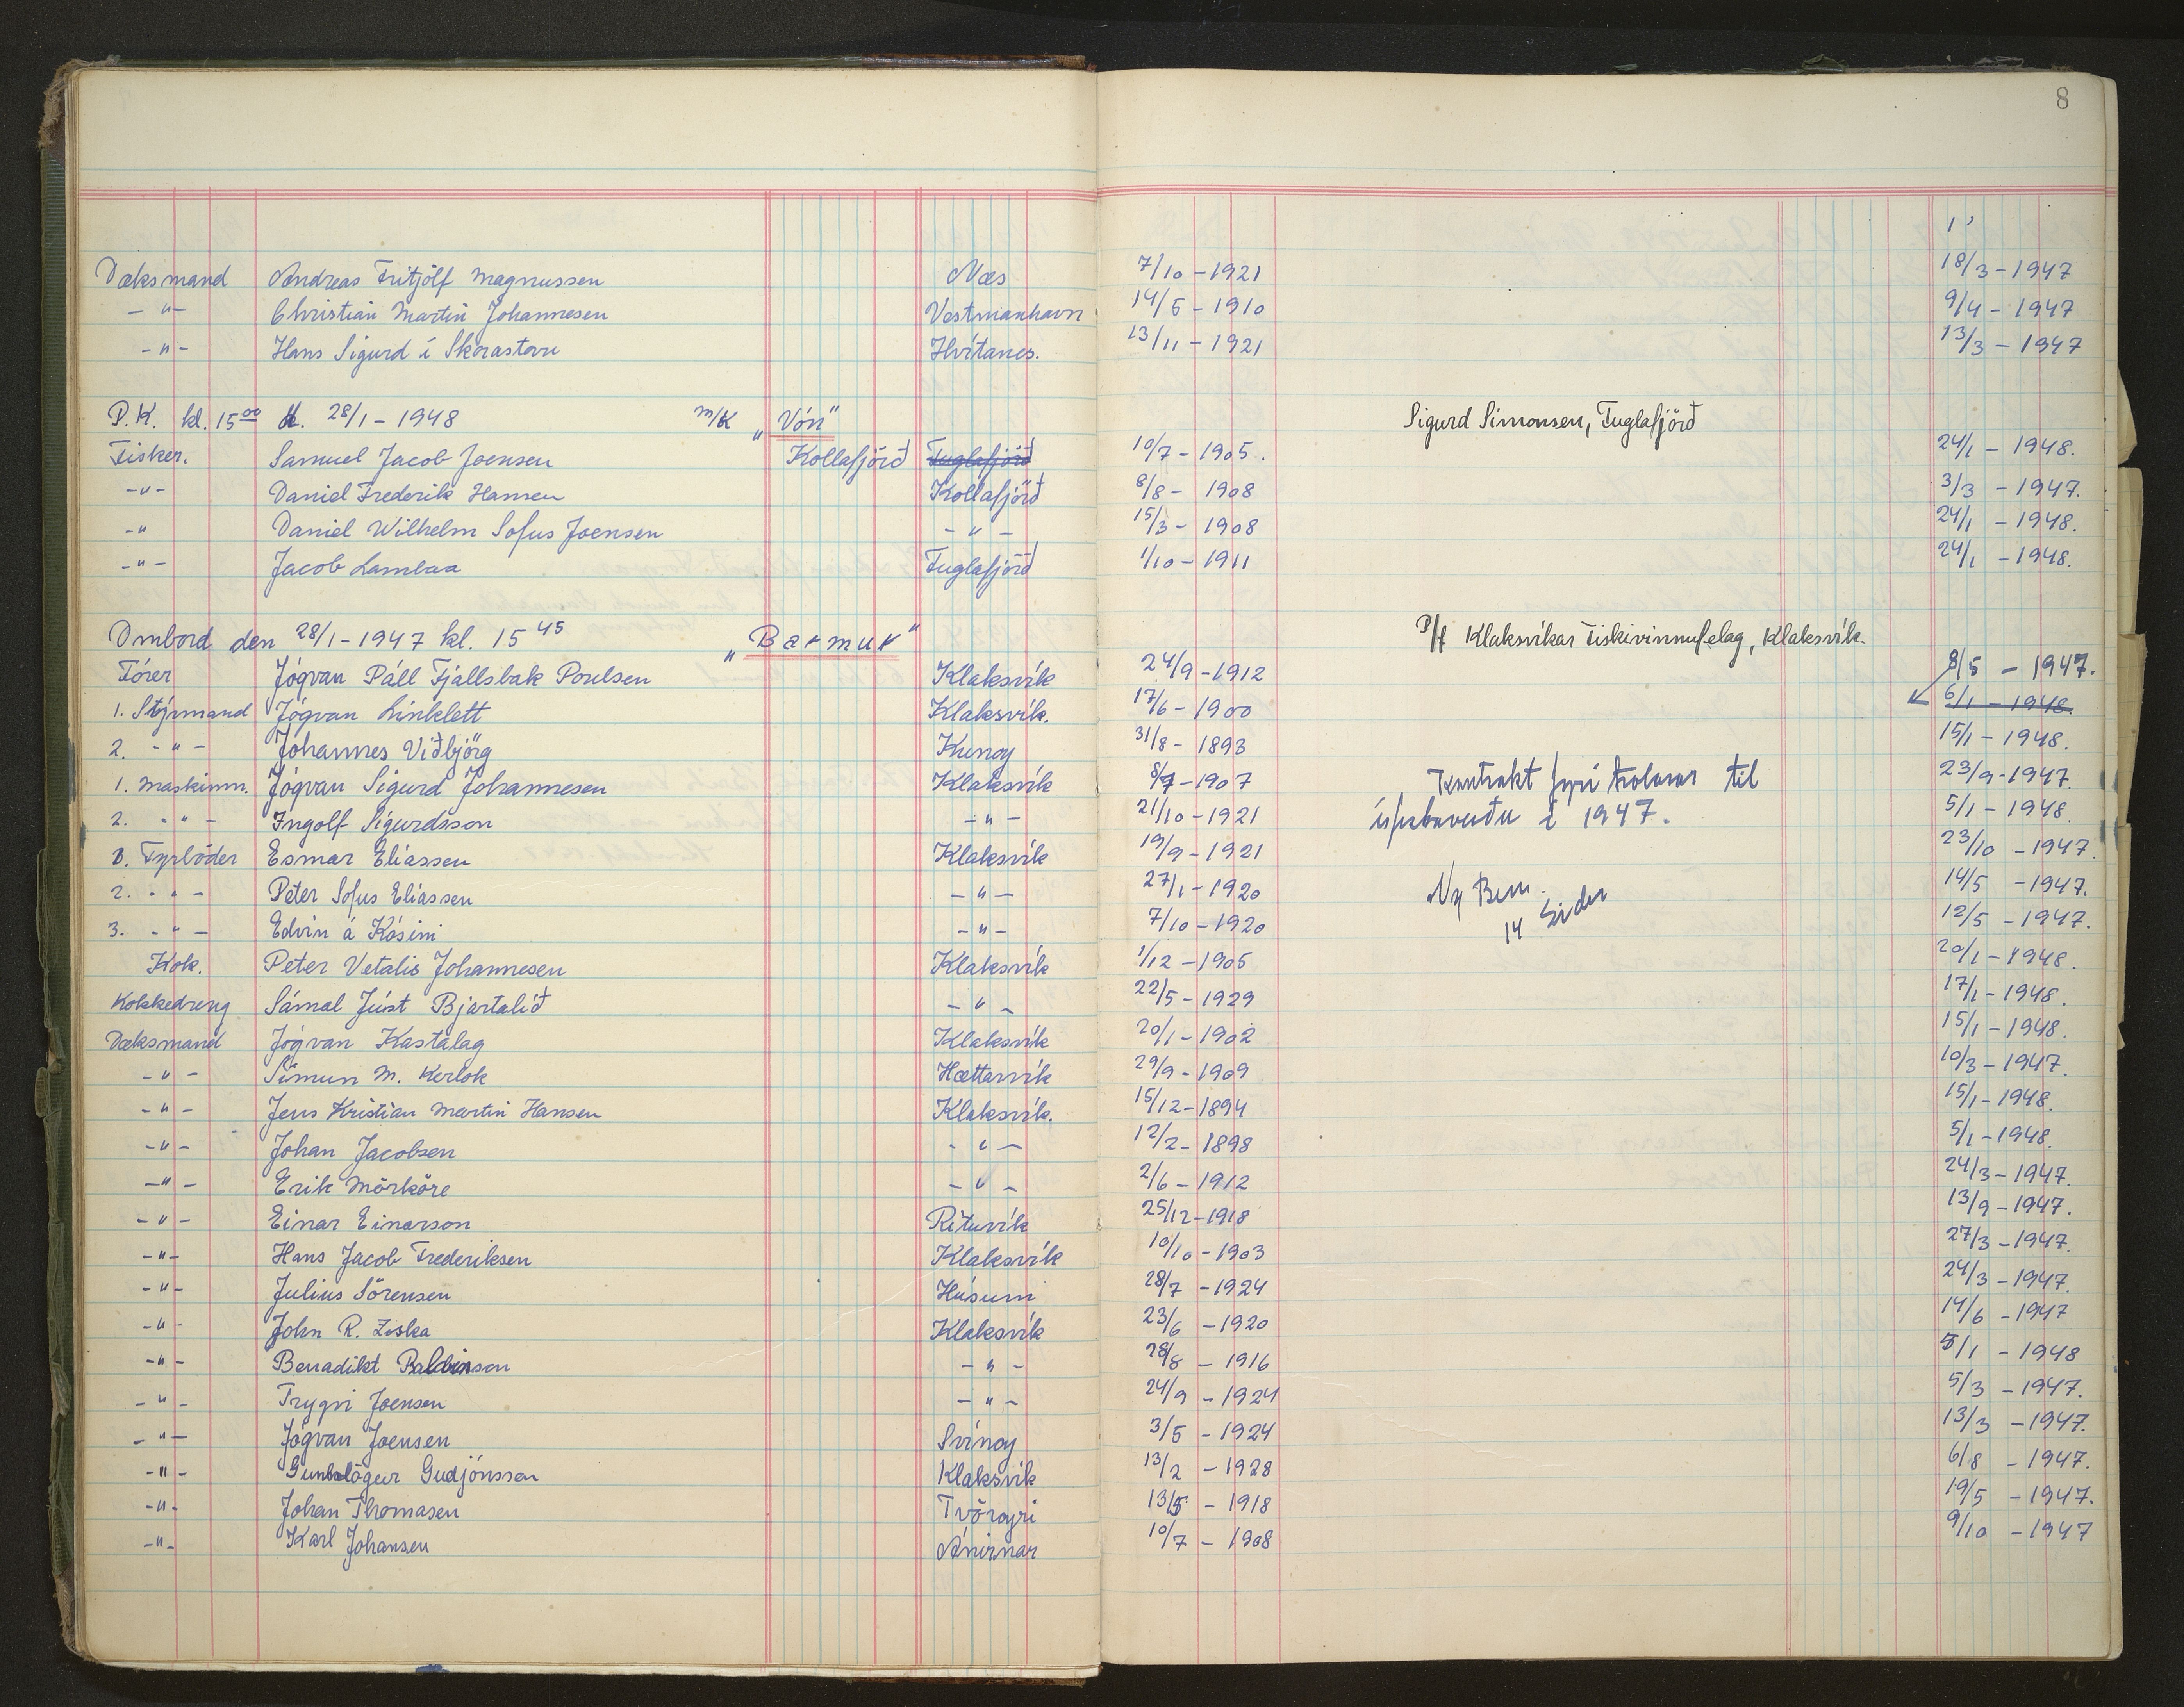 8
1'
Dæksmand Andreas Fritjólf Magnussen Næs 7/10 - 1921 18/3 - 1947
- " - Christian Martin Johannesen Vestmanhavn 14/5 - 1910 9/4 - 1947
- " - Hans Sigurd í Skorastovu Hvítanes. 13/11 - 1921 13/3 - 1947
P.K. kl. 15 00 d. 28/1 - 1948 m/k „Vón" Sigurd Simonsen, Fuglafjörð
Fisker. Samuel Jacob Joensen Kollafjörð Fuglafjörð 10/7 - 1905. 24/1 - 1948.
- " - Daniel Frederik Hansen Kollafjörð 8/8 - 1908 3/3 - 1947.
- " Daniel Wilhelm Sofus Joensen - " - 15/3 - 1908 24/1 - 1948.
- " - Jacob Lamhaa Fuglafjörð 1/10 - 1911 24/1 - 1948.
Ombord den 28/1 - 1947 kl. 15 45 „Barmur" P/f Klaksvíkar Fiskivinnufelag, Klaksvík.
Förer Jógvan Páll Fjallsbak Poulsen Klaksvík 24/9 - 1912 8/5 - 1947.
1. Stýrmand Jógvan Linklett Klaksvík. 17/6 - 1900 6/1 - 1948.
2. - " - Johannes Viðbjörg Kunoy 31/8 - 1893 15/1 - 1948.
1. Maskinm. Jógvan Sigurd Johannesen Klaksvík 8/7 - 1907 Kontrakt fyri trolarar til 23/9 - 1947.
2. - " - Ingolf Sigurdsson - " - 21/10 - 1921 í 1947. 5/1 - 1948.
1. Fyrböder Esmar Eliassen Klaksvík 19/9 - 1921 23/10 - 1947.
2. - " - Peter Sofus Eliassen - " - 27/1 - 1920 Ny Bem. 14/5 - 1947.
3. - " - Edvin á Kósini - " - 7/10 - 1920 14 Sider 12/5 - 1947.
Kok. Peter Vetalis Johannesen Klaksvík 1/12 - 1905 20/1 - 1948.
Kokkedreng Sámal Júst Bjartalíð - " - 22/5 - 1929 17/1 - 1948.
Dæksmand Jógvan Kastalag Klaksvík 20/1 - 1902 15/1 - 1948.
- " - Símun M. Kerlok Hattarvík 29/9 - 1909 10/3 - 1947.
- " - Jens Kristian Martin Hansen Klaksvík. 15/12 - 1894 15/1 - 1948.
- " - Johan Jacobsen - " - 12/2 - 1898 5/1 - 1948.
- " - Erik Mörköre - " - 2/6 - 1912 24/3 - 1947.
- " - Einar Einarson Rituvík 25/12 - 1918 13/9 - 1947.
- " - Hans Jacob Frederiksen Klaksvík 10/10 - 1903 27/3 - 1947.
- " - Julius Sörensen Húsum 28/7 - 1924 24/3 - 1947.
- " - John R. Ziska Klaksvík 23/6 - 1920 14/6 - 1947
- " - Benadikt Baldvinson - " - 28/8 - 1916 5/1 - 1948
- " - Trygvi Joensen - " - 24/9 - 1924 5/3 - 1947.
- " - Jógvan Joensen Svínoy 3/5 - 1924 13/3 - 1947.
- " - Gunnlögur Gudjónsson Klaksvík 13/2 - 1928 6/8 - 1947.
- " - Johan Thomasen Tvöroyri 13/5 - 1918 19/5 - 1947.
- " - Karl Johansen Ánirnar 10/7 - 1908 9/10 - 1947